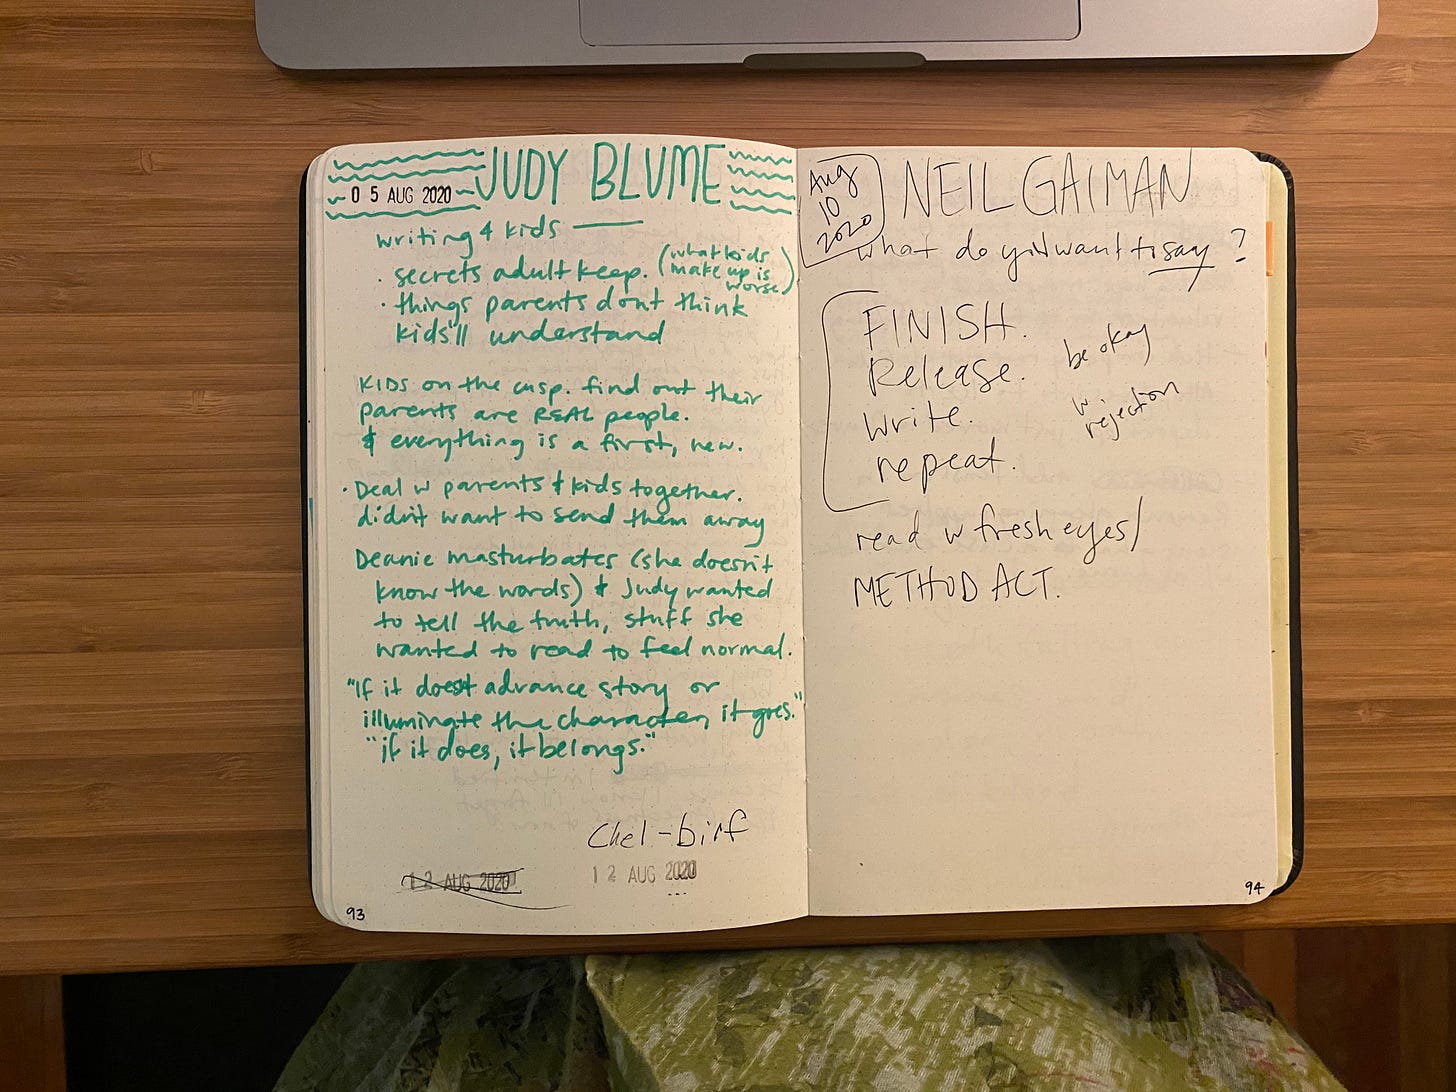 05 AUG 2020
JUDY BLUME
writing 4 kids
· secrets adult keep. (what kids
make up is
worse)
· things parents dont think
kids'll understand
KIDS on the cusp. find out their
parents are REAL people.
& everything is a first, new.
· Deal w parents & kids together.
didn't want to send them away
Deanie masturbates (she doesn't
know the words) & Judy wanted
to tell the truth, stuff she
wanted to read to feel normal.
"If it doesnt advance story or
illuminate the character, it goes."
"if it does, it belongs."
Chel-birf
12 AUG 2020
12 AUG 2020
93
Aug
10
2020
NEIL GAIMAN
what do you want to say?
FINISH.
Release.
write.
repeat.
be okay
w
rejection
read w fresh eyes/
METHOD ACT.
94